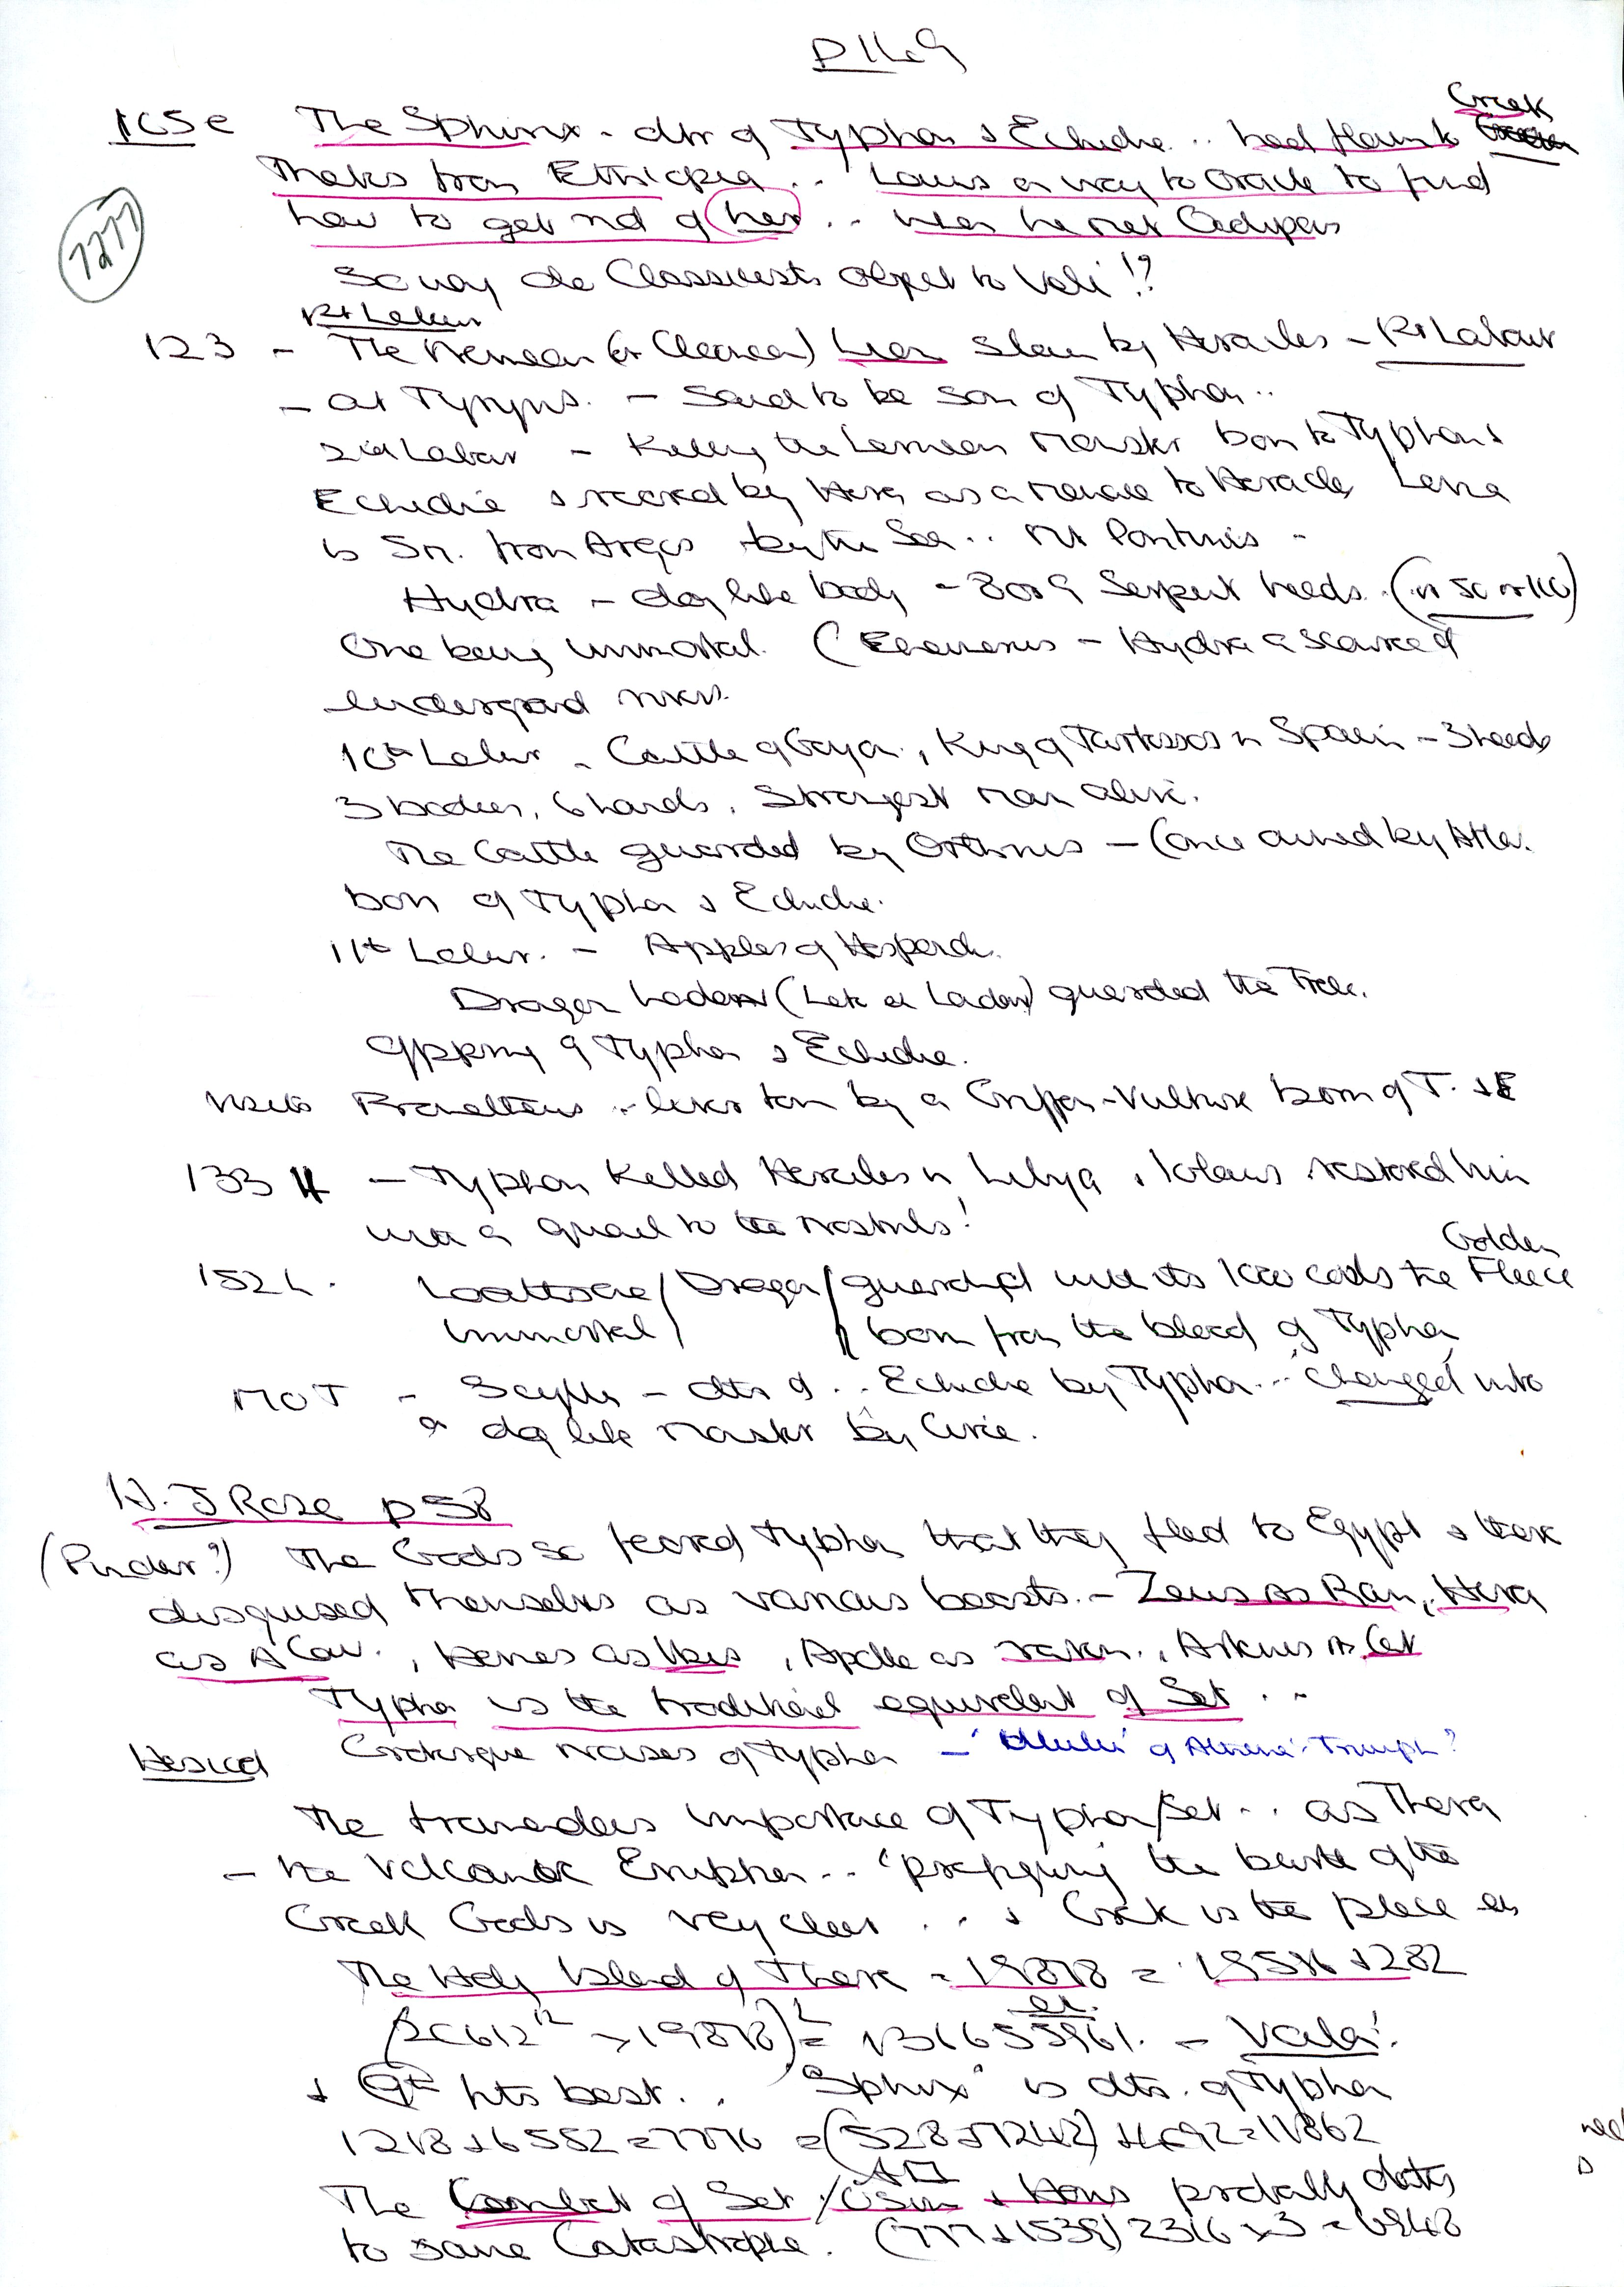 105e The Sphinx - dtr of Typhon & Echidne .. had flown to Greek
Thebes from Ethiopia .. Laius on way to Oracle to find
how to get rid of her .. when he met Oedipus
7277
So why do Classicists object to Veli !?
1st Labour
123 - The Nemean (or Cleonean) Lion slain by Heracles - 1st Labour
- at Tyryns. - Said to be son of Typhon ..
2nd Labour - Killing the Lernean Monster born to Typhon &
Echidne & reared by Hera as a menace to Heracles Lerna
is 5m. from Argos by the Sea .. Mt Pontinus -
Hydra - dog like body - 8 or 9 Serpent heads. (or 50 or 100)
One being immortal. (Euhemerus - Hydra a source of
underground rivers.
10th Labour - Cattle of Geryon, King of Tartessos in Spain - 3 heads
3 bodies, 6 hands, Strongest man alive.
The Cattle guarded by Orthrus - (once owned by Atlas.
born of Typhon & Echidne.
11th Labour. - Apples of Hesperides.
Dragon Ladon (Lat or Ladon) guarded the Tree.
Offspring of Typhon & Echidne.
Visits Prometheus .. liver torn by a Griffon-Vulture born of T. & E
133 H - Typhon Killed Heracles in Libya, Iolaus restored him
with a quail to the nostrils!
Golden
152 h. Loathsome / Dragon / guarded with its 1000 coils the Fleece
immortal / born from the blood of Typhon
170 T - Scylla - dtr of .. Echidne by Typhon .. changed into
a dog like monster by Circe.
H. J Rose p 58
(Pindar?) The Gods so feared Typhon that they fled to Egypt & there
disguised themselves as various beasts. - Zeus as Ram, Hera
as A Cow., Hermes as Ibis, Apollo as raven., Artemis as Cat
Typhon is the traditional equivalent of Set ..
Hesiod Grotesque noises of Typhon - of Athena Triumph?
The tremendous importance of Typhon/Set .. as Thera
- the Volcanic Eruption .. 'prefiguring' the birth of the
Greek Gods is very clear ... & Crete is the place as
The Holy Island of Thera = 19878 = 19596 + 282
+ 9th fits best .. "Sphinx" is dtr. of Typhon
The Combat of Set / Osiris & Horus probably dates
to same Catastrophe. (777 + 1539) 2316 x 3 = 6948